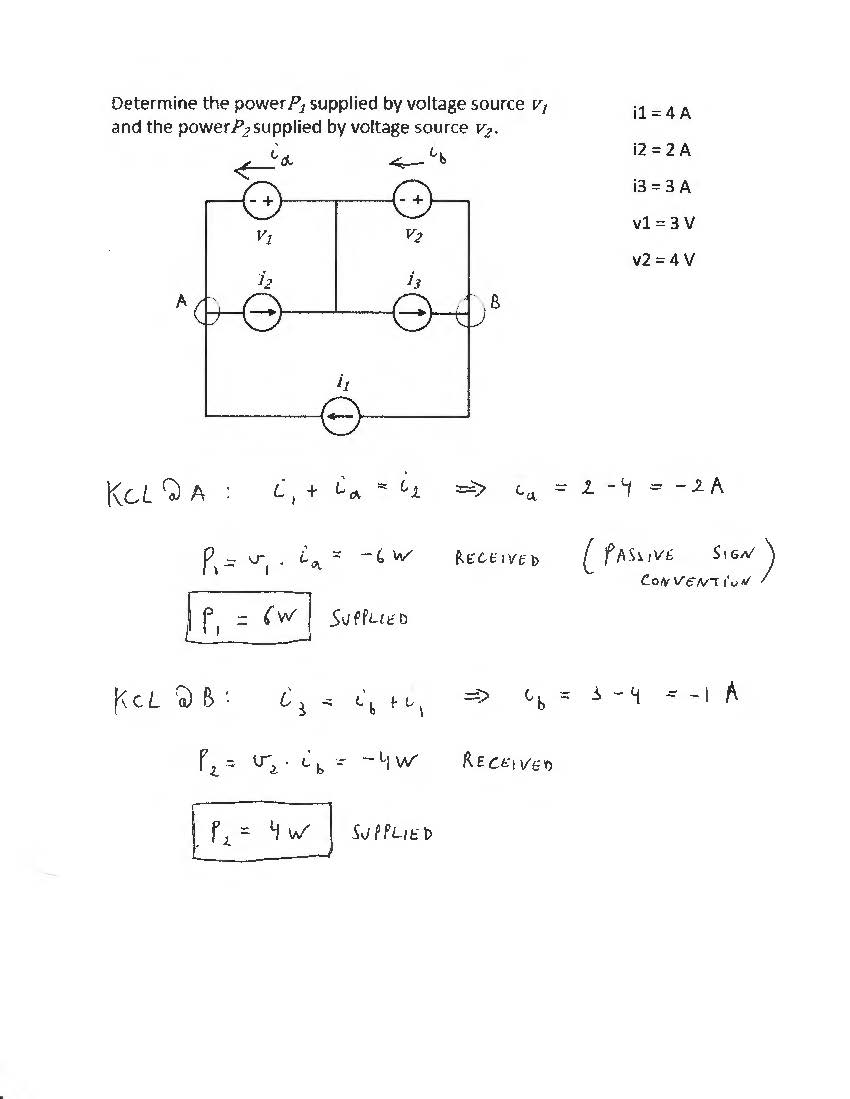 Determine the power P1 supplied by voltage source v1
and the power P2 supplied by voltage source v2.
i1 = 4 A
i2 = 2 A
i3 = 3 A
v1 = 3 V
v2 = 4 V
ia
ib
- +
- +
v1
v2
i2
i3
A
B
i1
KCL @ A : i1 + ia = i2 ⇒ ia = 2 - 4 = -2 A
P1 = v1 · ia = -6 W RECEIVED (PASSIVE SIGN
CONVENTION)
P1 = 6W SUPPLIED
KCL @ B : i3 = ib + i1 ⇒ ib = 3 - 4 = -1 A
P2 = v2 · ib = -4 W RECEIVED
P2 = 4 W SUPPLIED